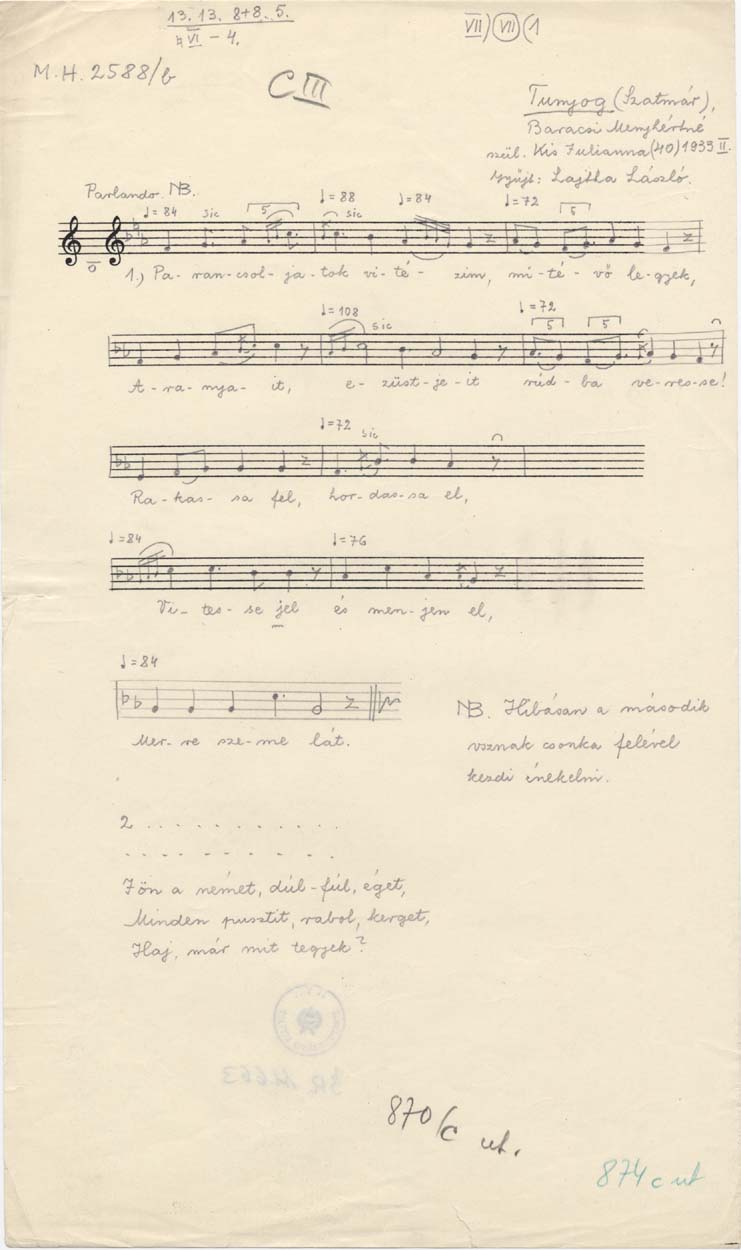 13. 13. 8+8. 5.
♮VI – 4.
VII) (VII) (1
M.H. 2588/b
C III
Tunyog (Szatmár),
Baracsi Menyhértné
szül. Kis Julianna (40) 1933 II.
Gyűjt: Lajtha László.
Parlando. NB.
♩= 84 sic 5 ♩= 88 sic ♩= 84 ♩= 72 5
1.) Pa- ran- csol- ja- tok vi- té- zim, mi- té- vő le- gyek,
♩= 108 sic ♩= 72 5 5
A- ra- nya- it, e- züst- je- it rúd- ba ve- res- se!
♩= 72 sic
Ra- kas- sa fel, hor- das- sa el,
♩= 84 ♩= 76
Vi- tes- se jel és men- jen el,
♩= 84
Mer- re sze- me lát.
NB. Hibásan a második
vsznak csonka felével
kezdi énekelni.
2 . . . . . . . . . . .
. . . . . . . . .
Jön a német, dúl-fúl, éget,
Minden pusztit, rabol, kerget,
Haj, már mit tegyek?
870/c ut.
874 c ut